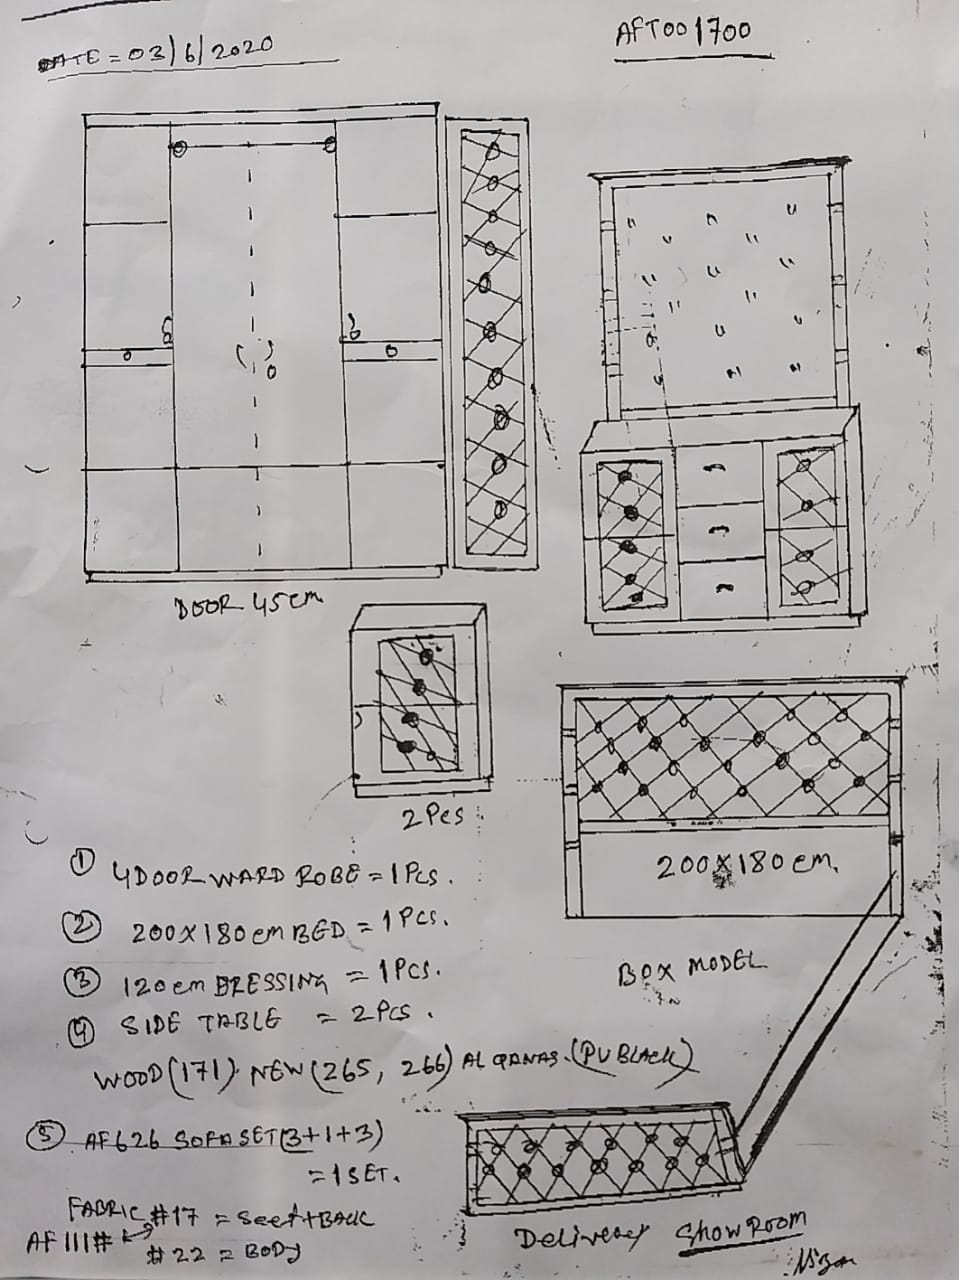 DATE = 03/6/2020
AFT001700
DOOR 45cm
2Pcs
200X180cm.
BOX MODEL
① 4DOOR WARD ROBE = 1Pcs.
② 200X180cm BED = 1Pcs.
③ 120cm DRESSING = 1Pcs.
④ SIDE TABLE = 2Pcs.
WOOD (171) NEW (265, 266) AL QANAS. (PU BLACK)
⑤ AF626 SOFA SET (3+1+3)
= 1 SET.
FABRIC #17 = Seet + BACK
AF 111#
#22 = BODY
Delivery Showroom